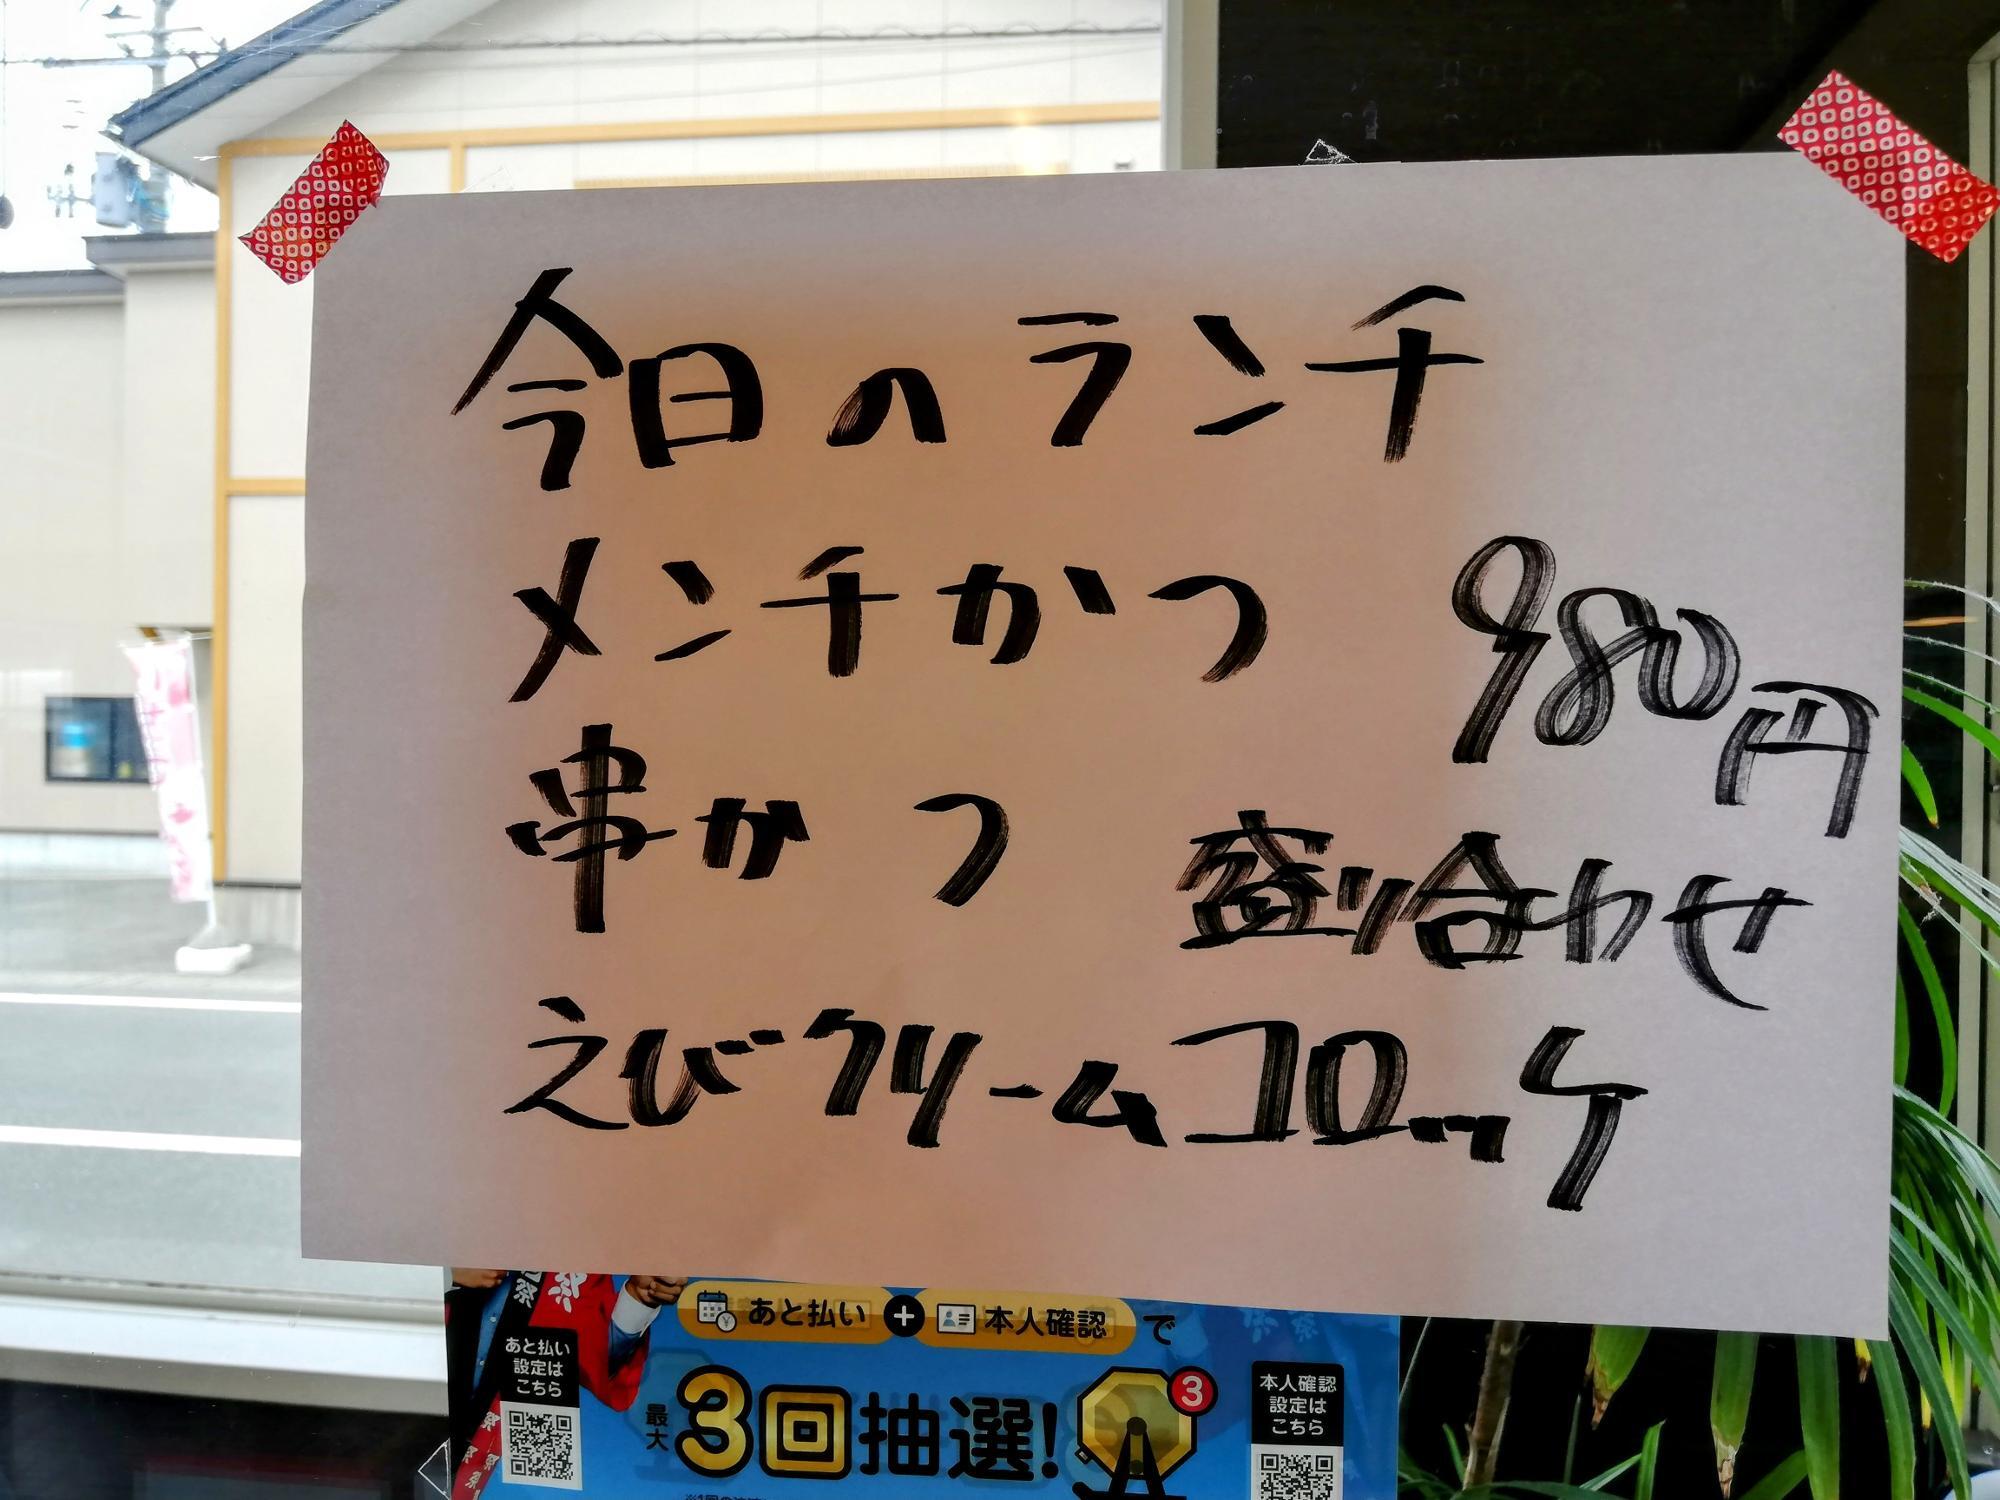 今日のランチ
メンチかつ
980円
串かつ
盛り合わせ
えびクリームコロッケ
あと払い + 本人確認 で
あと払い
設定は
こちら
最大3回抽選!
3
本人確認
設定は
こちら